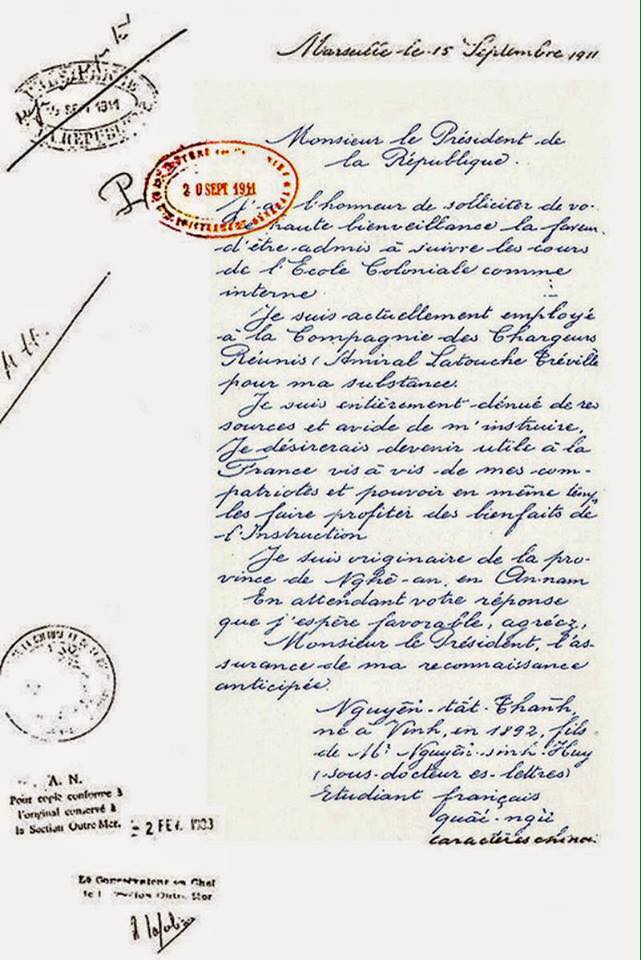 Marseille le 15 Septembre 1911
PRESIDENCE
SEPT 1911
LA REPUBLIQUE
Monsieur le Président de
la République
20 SEPT 1911
J'ai l'honneur de solliciter de vo-
tre haute bienveillance la faveur
d'être admis à suivre les cours
de l'Ecole Coloniale comme
interne
Je suis actuellement employé
à la Compagnie des Chargeurs
Réunis (Amiral Latouche Tréville
pour ma substance.
Je suis entièrement dénué de res
sources et avide de m'instruire.
Je désirerais devenir utile à la
France vis à vis de mes com-
patriotes et pouvoir en même temps
les faire profiter des bienfaits de
l'Instruction
Je suis originaire de la pro-
vince de Nghê-an, en An-nam
En attendant votre réponse
que j'espère favorable, agréez,
Monsieur le Président, l'as-
surance de ma reconnaissance
anticipée.
Nguyên-tât-Thanh,
né à Vinh, en 1892, fils
de Mr Nguyên-sinh-Huy
(sous-docteur es-lettres)
Etudiant français
quâi-ngü
caractères chinois
A. N.
Pour copie conforme à
l'original conservé à
la Section Outre Mer.
- 2 FEV. 1983
Le Conservateur en Chef
de la Section Outre Mer